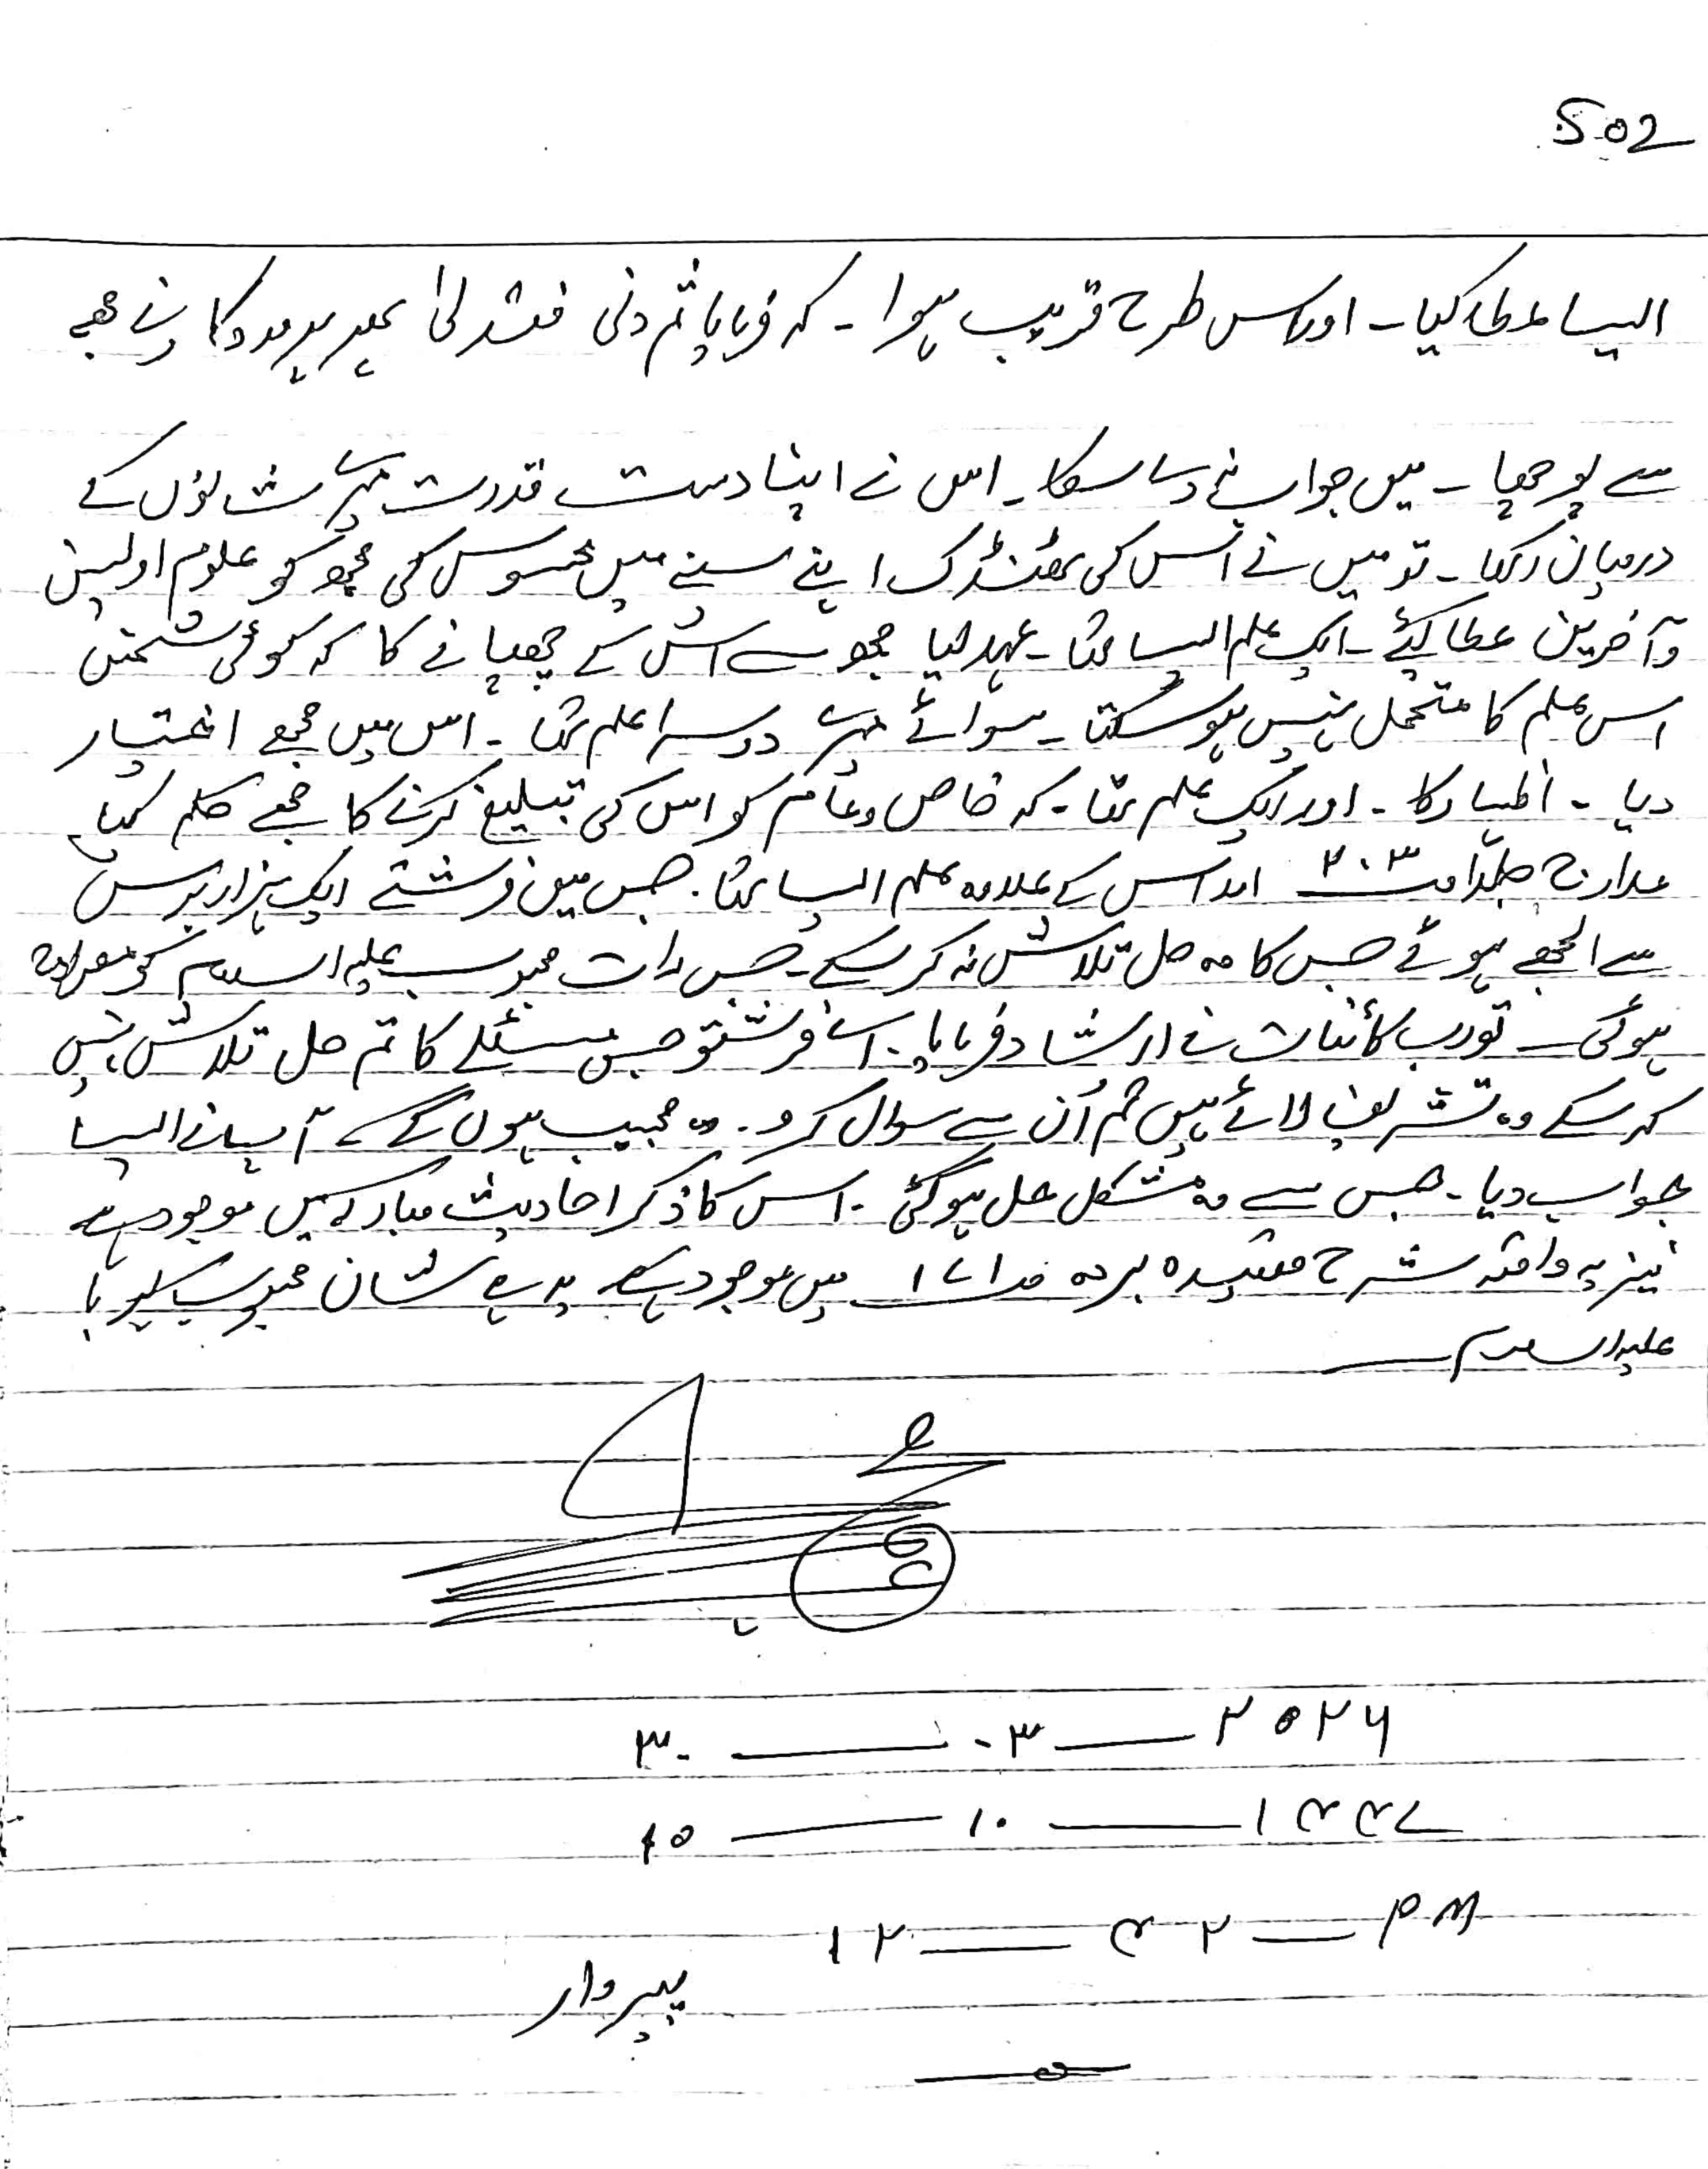 502
ایسا عطا کیا۔ اور اس طرح قریب ہوا۔ کہ فرمایا ثم دنی فتدلیٰ پھر میرے پروردگار نے مجھ
سے پوچھا۔ میں جواب نہ دے سکا۔ اس نے اپنا دست قدرت میرے شانوں کے
درمیان رکھا۔ تو میں نے اس کی ٹھنڈک اپنے سینے میں محسوس کی مجھ کو علوم اولین
و آخرین عطا کیئے۔ ایک علم ایسا تھا۔ عہد لیا مجھ سے اس کے چھپانے کا کہ کوئی شخص
اس علم کا متحمل نہیں ہو سکتا۔ سوائے میرے دوسرا علم تھا۔ اس میں مجھے اختیار
دیا۔ اظہار کا۔ اور ایک علم تھا۔ کہ خاص و عام کو اس کی تبلیغ کرنے کا مجھے حکم کیا
مدارج جلد ۱ ص ۲۰۳ اور اس کے علاوہ علم ایسا تھا۔ جس میں فرشتے ایک ہزار برس
سے الجھے ہوئے جس کا وہ حل تلاش نہ کر سکے۔ جس رات محبوب علیہ السلام کو معراج
ہوئی۔ تو رب کائنات نے ارشاد فرمایا۔ اے فرشتو جس مسئلے کا تم حل تلاش نہیں
کر سکے وہ تشریف لائے ہیں تم اُن سے سوال کرو۔ وہ مجیب ہوں گے۔ آپ نے ایسا
جواب دیا۔ جس سے وہ مشکل حل ہو گئی۔ اس کا ذکر احادیث مبارکہ میں موجود ہے
نیز یہ واقعہ شرح قصیدہ بردہ میں موجود ہے یہ ہے شان محبوب کبریا
علیہ السلام
۲۰۲۶ — ۰۳ — ۳۰
۱۴۴۷ — ۱۰ — ۱۰
۱۲ — ۲۴ — PM
پیر وار